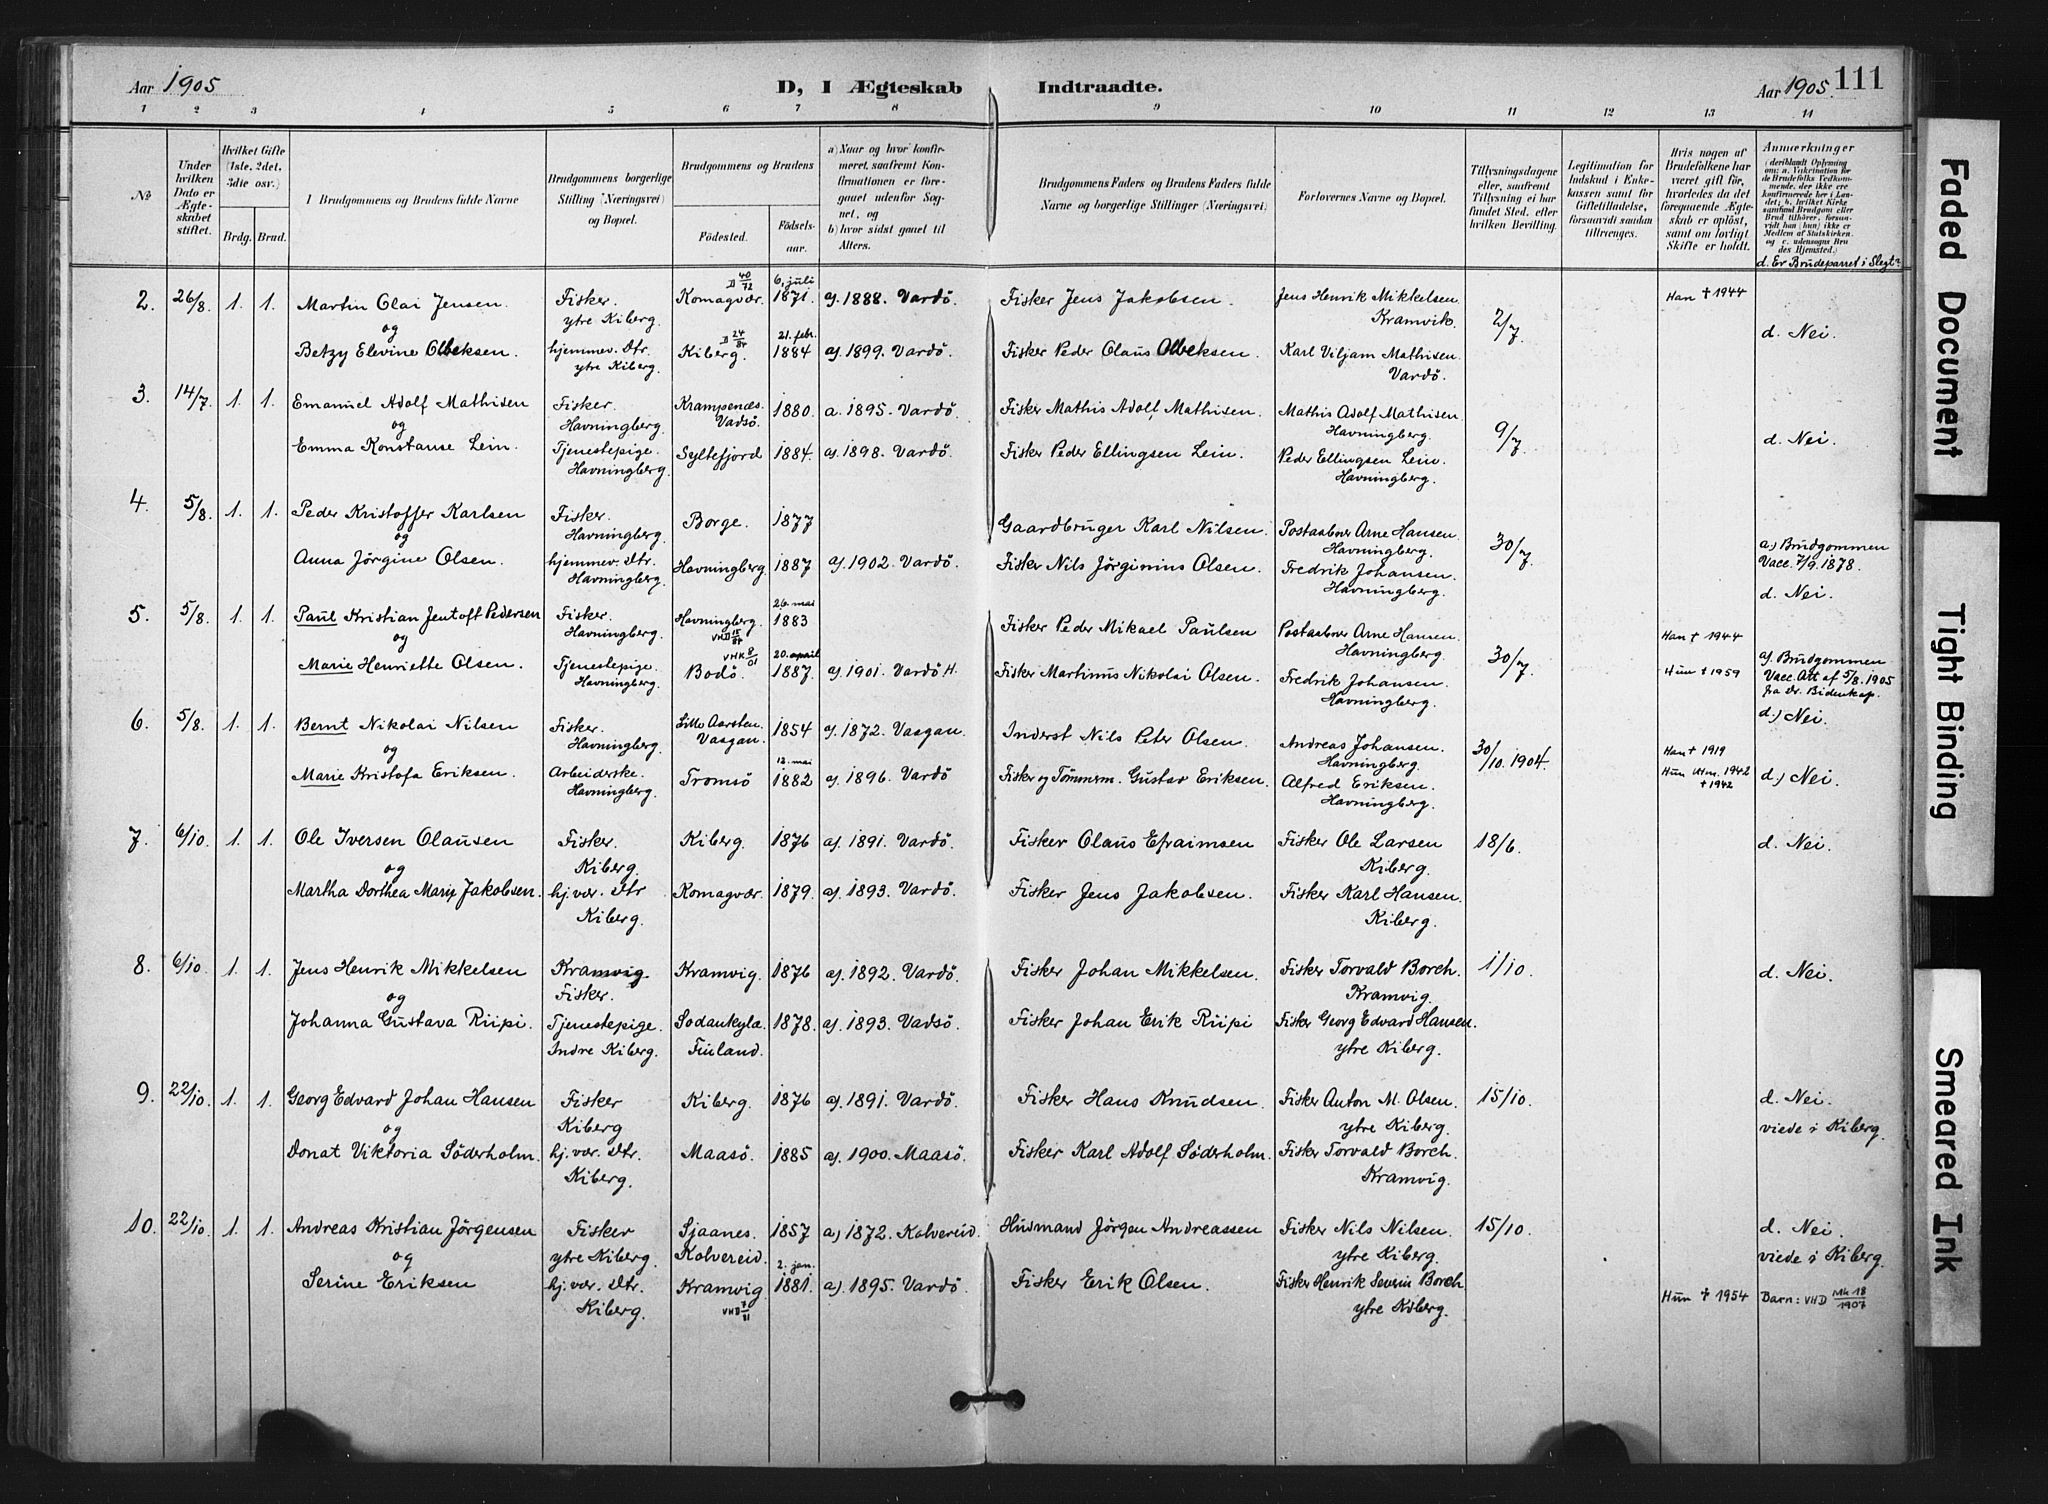 Aar 1905 D, I Ægteskab Indtraadte. Aar 1905. 111
1 2 3 4 5 6 7 8 9 10 11 12 13 14
№
Under hvilken Dato er Ægteskabet stiftet.
Hvilket Gifte (1ste, 2det, 3die osv.)
Brdg. Brud.
Brudgommens og Brudens fulde Navne
Brudgommens borgerlige Stilling (Næringsvei) og Bopæl.
Brudgommens og Brudens
Fødested. Fødselsaar.
a) Naar og hvor konfirmeret, saafremt Konfirmationen er foregaaet udenfor Sognet, og
b) hvor sidst gaaet til Alters.
Brudgommens Faders og Brudens Faders fulde Navne og borgerlige Stillinger (Næringsvei)
Forlovernes Navne og Bopæl.
Tillysningsdagene eller, saafremt Tillysning ei har fundet Sted, efter hvilken Bevilling.
Legitimation for Indskud i Enkekassen samt for Giftetilladelse, forsaavidt saadan tiltrænges.
Hvis nogen af Brudefolkene har været gift før, hvorledes da det foregaaende Ægteskab er opløst, samt om lovligt Skifte er holdt.
Anmærkninger
(deriblandt Oplysning om: a. Vakcination for de Brudefolks Vedkommende, der ikke ere konfirmerede her i Landet; b. hvilket Kirkesamfund Brudgom eller Brud tilhører, forsaavidt han (hun) ikke er Medlem af Statskirken og c. udensogns Brudes Hjemsted.)
d. Er Brudeparret i Slegt?
D 40/72 6. juli
2. 26/8 1. 1. Martin Olai Jensen Fisker. Komagvær. 1871. a). 1888. Vardö. Fisker Jens Jakobsen. Jens Henrik Mikkelsen Han † 1944
og ytre Kiberg. D 24/84 21. febr. Kramvik. 2/7 d. Nei.
Betzy Elevine Olbeksen. hjemmev. Dtr. Kiberg. 1884 a). 1899. Vardö. Fisker Peder Olaus Olbeksen. Karl Viljam Mathisen
ytre Kiberg. Vardö.
3. 14/7 1. 1. Emanuel Adolf Mathisen Fisker. Krampenæs. 1880. a. 1895. Vardö. Fisker Mathis Adolf Mathisen. Mathis Adolf Mathisen
og Havningberg. Vadsö. Havningberg. 9/7 d. Nei.
Emma Konstanse Lein. Tjenestepige. Syltefjord 1884. a). 1898. Vardö. Fisker Peder Ellingsen Lein. Peder Ellingsen Lein.
Havningberg. Havningberg.
4. 5/8. 1. 1. Peder Kristoffer Karlsen Fisker. Borge. 1877 Gaardbruger Karl Nilsen. Postaabner Arne Hansen.
og Havningberg. Havningberg. 30/7 a.) Brudgommen
Anna Jörgine Olsen. hjemmev. Dtr. Havningberg. 1887 a). 1902. Vardö. Fisker Nils Jörginius Olsen. Fredrik Johansen. Vacc. 7/9. 1878.
Havningberg. Havningberg. d. Nei.
26. mai
5. 5/8. 1 1. Paul Kristian Jentoft Pedersen Fisker. Havningberg. 1883 Fisker Peder Mikael Paulsen Postaabner Arne Hansen. Han † 1944
og Havningberg. VHD 15/84 Havningberg.
VHK 8/01 20. april 30/7 a). Brudgommen
Marie Henriette Olsen. Tjenestepige. Bodö. 1887. a). 1901. Vardö H. Fisker Martinus Nikolai Olsen. Fredrik Johansen. Hun † 1959 Vacc. Att af 5/8. 1905
Havningberg. Havningberg. fra dr. Bidenkap.
d.) Nei.
6. 5/8. 1. 1. Bernt Nikolai Nilsen Fisker. Lille Aarsten. 1854 a). 1872. Vaagan. Inderst Nils Peter Olsen. Andreas Johansen. Han † 1919
og Havningberg. Vaagan. 12. mai Havningberg. 30/10. 1904.
Marie Kristofa Eriksen. Arbeiderske. Tromsö 1882 a). 1896. Vardö Fisker og Tömmerm. Gustav Eriksen. Alfred Eriksen. Hun utm. 1942 d.) Nei.
Havningberg. Havningberg. † 1942
7. 6/10. 1 1. Ole Iversen Olausen Fisker. Kiberg. 1876 a). 1891. Vardö. Fisker Olaus Efraimsen Fisker Ole Larsen 18/6. d. Nei.
og Kiberg. Kiberg.
Martha Dorthea Marie Jakobsen. hj. vær. Dtr Komagvær. 1879. a). 1893. Vardö. Fisker Jens Jakobsen. Fisker Karl Hansen.
Kiberg. Kiberg.
8. 6/10. 1. 1. Jens Henrik Mikkelsen Kramvig Kramvig. 1876 a). 1892. Vardö. Fisker Johan Mikkelsen. Fisker Torvald Borch. 1/10. d. Nei.
og Fisker. Kramvig.
Johanna Gustava Riipi. Tjenestepige. Sodankylæ 1878. a). 1893. Vadsö. Fisker Johan Erik Riipi Fisker Georg Edvard Hansen.
Indre Kiberg. Finland. ytre Kiberg.
9. 22/10. 1. 1. Georg Edvard Johan Hansen Fisker Kiberg. 1876 a). 1891. Vardö. Fisker Hans Knudsen. Fisker Anton M. Olsen. 15/10. d. Nei.
og Kiberg ytre Kiberg. viede i Kiberg.
Donat Viktoria Söderholm. hj. vær. Dtr. Maasö. 1885 a). 1900. Maasö. Fisker Karl Adolf Söderholm. Fisker Torvald Borch.
Kiberg. Kramvig.
10. 22/10. 1. 1. Andreas Kristian Jörgensen Fisker Sjaanes. 1857 a) 1872. Kolvereid. Husmand Jörgen Andreassen Fisker Nils Nilsen. 15/10. d. Nei.
og ytre Kiberg. Kolvereid. 2. jan. ytre Kiberg. viede i Kiberg.
Serine Eriksen hj. vær. Dtr. Kramvig 1881. a). 1895. Vardö. Fisker Erik Olsen. Fisker Henrik Severin Borch
Kiberg. VHD 7/81 ytre Kiberg. Hun † 1954 Barn: VHD Mk 18/1907
Faded Document
Tight Binding
Smeared Ink